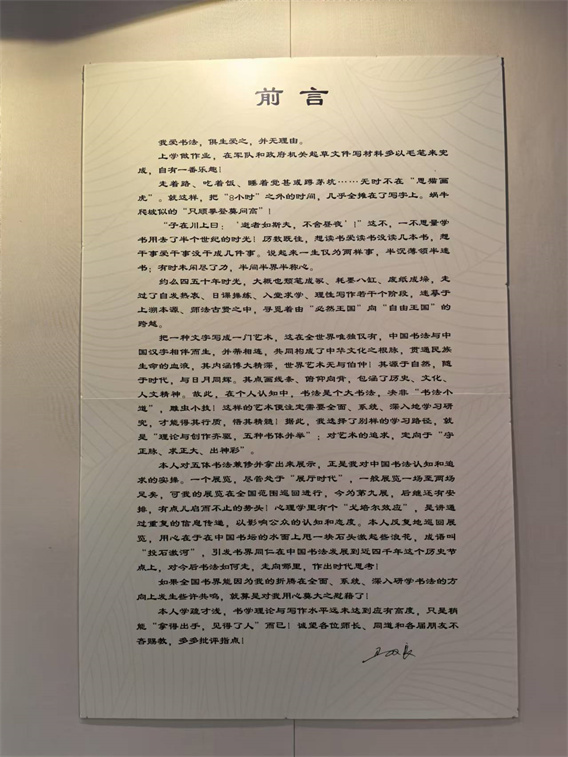 前言
我爱书法，俱生爱之，并无理由。
上学做作业，在军队和政府机关起草文件写材料多以毛笔来完
成，自有一番乐趣！
走着路、吃着饭、睡着觉甚或蹲茅坑……无时不在“思猫画
虎”。就这样，把“8小时”之外的时间，几乎全摊在了写字上。蜗牛
爬坡似的“只顾攀登莫问高”！
“子在川上曰：‘逝者如斯夫，不舍昼夜’！”这不，一不思量学
书用去了半个世纪的时光！历数既往，想读书爱读书没读几本书，想
干事爱干事没干成几件事。说起来一生仅为两样事，半沉薄领半迷
书；有时末闲尽了力，半间半界半称心。
约么四五十年时光，大概也颓笔成冢、耗墨八缸、废纸成垛，走
过了自发热衷、日课操练、入堂求学、理性写作若干个阶段，进摹于
上溯本源、师法古贤之中，寻觅着由“必然王国”向“自由王国”的
跨越。
把一种文字写成一门艺术，这在全世界唯独仅有，中国书法与中
国汉字相伴而生，并蒂相连，共同构成了中华文化之根脉，贯通民族
生命的血液，其内涵博大精深，世界艺术无与伯仲！其源于自然，随
于时代，与日月同辉。其点画线条、俯仰向背，包涵了历史、文化、
人文精神。故此，在个人认知中，书法是个大书法，决非“书法小
道”，雕虫小技！这样的艺术便注定需要全面、系统、深入地学习研
究，才能得其行质，悟其精髓！据此，我选择了别样的学习路径，就
是“理论与创作齐驱，五种书体并举”；对艺术的追求，定向于“字
正脉、求正大、出神彩”。
本人对五体书法兼修并拿出来展示，正是我对中国书法认知和追
求的实操。一个展览，尽管处于“展厅时代”，一般展览一场至两场
足矣，可我的展览在全国范围巡回进行，今为第九展，后继还有安
排，有点儿启而不止的势头！心理学里有个“戈培尔效应”，是讲通
过重复的信息传递，以影响公众的认知和态度。本人反复地巡回展
览，用心在于在中国书坛的水面上甩一块石头激起些浪花，成语叫
“投石激河”，引发书界同仁在中国书法发展到近四千年这个历史节
点上，对今后书法如何走，走向哪里，作出时代思考！
如果全国书界能因为我的折腾在全面、系统、深入研学书法的方
向上发生些许共鸣，就算是对我用心莫大之慰藉了！
本人学疏才浅，书学理论与写作水平远未达到应有高度，只是稍
能“拿得出手，见得了人”而已！诚望各位师长、同道和各届朋友不
吝赐教，多多批评指点！